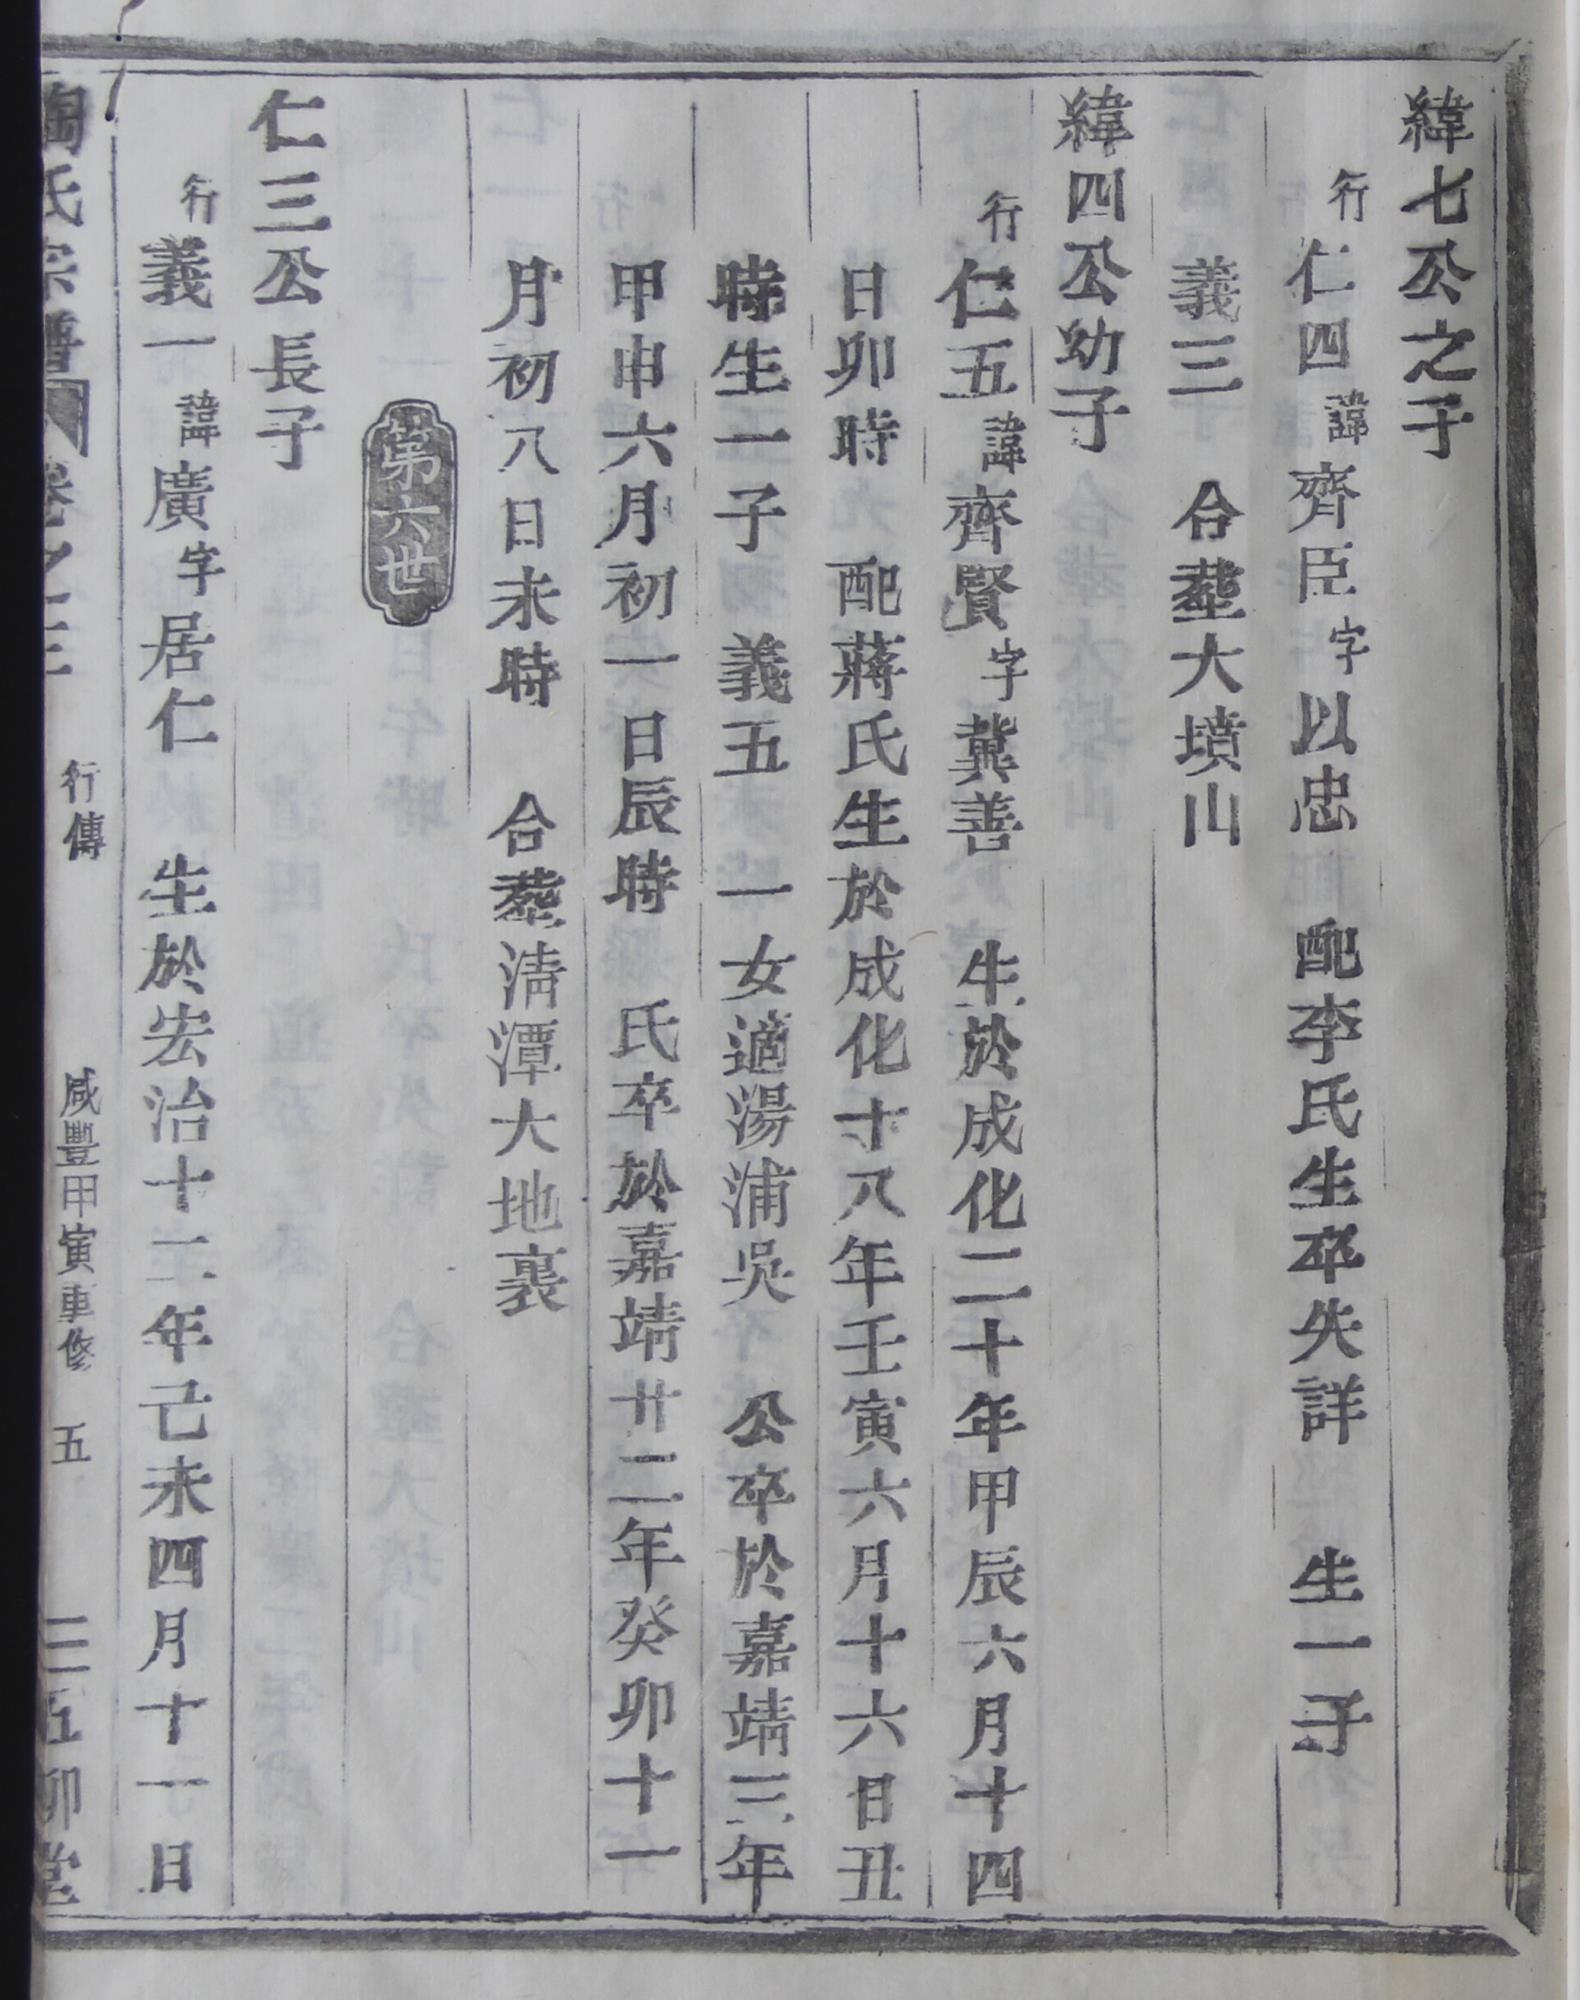 緯七公之子
行仁四諱齊臣字以忠　配李氏生卒失詳　生一子
義三　合塟大墳山
緯四公幼子
行仁五諱齊賢字冀善　生於成化二十年甲辰六月十四
日卯時　配蔣氏生於成化十八年壬寅六月十六日丑
時生一子　義五　一女適湯浦吳　公卒於嘉靖三年
甲申六月初一日辰時　氏卒於嘉靖廿二年癸卯十一
月初八日未時　合塟淸潭大地裏
第六世
仁三公長子
行義一諱廣字居仁　生於宏治十二年己未四月十一日
陶氏宗譜　卷之三　行傳　咸豐甲寅重修　五　三五柳堂